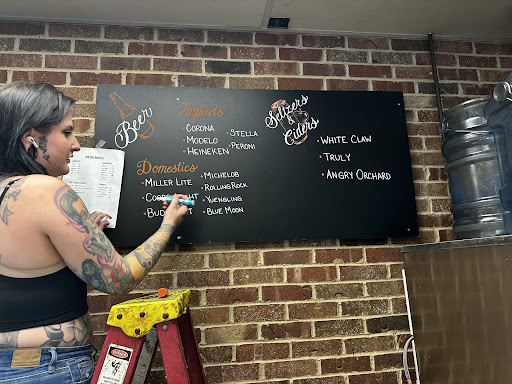 Beer
Imports
CORONA
MODELO
HEINEKEN
STELLA
PERONI
Domestics
MILLER LITE
BUD
MICHELOB
ROLLING ROCK
YUENGLING
BLUE MOON
Seltzers &
Ciders
WHITE CLAW
TRULY
ANGRY ORCHARD